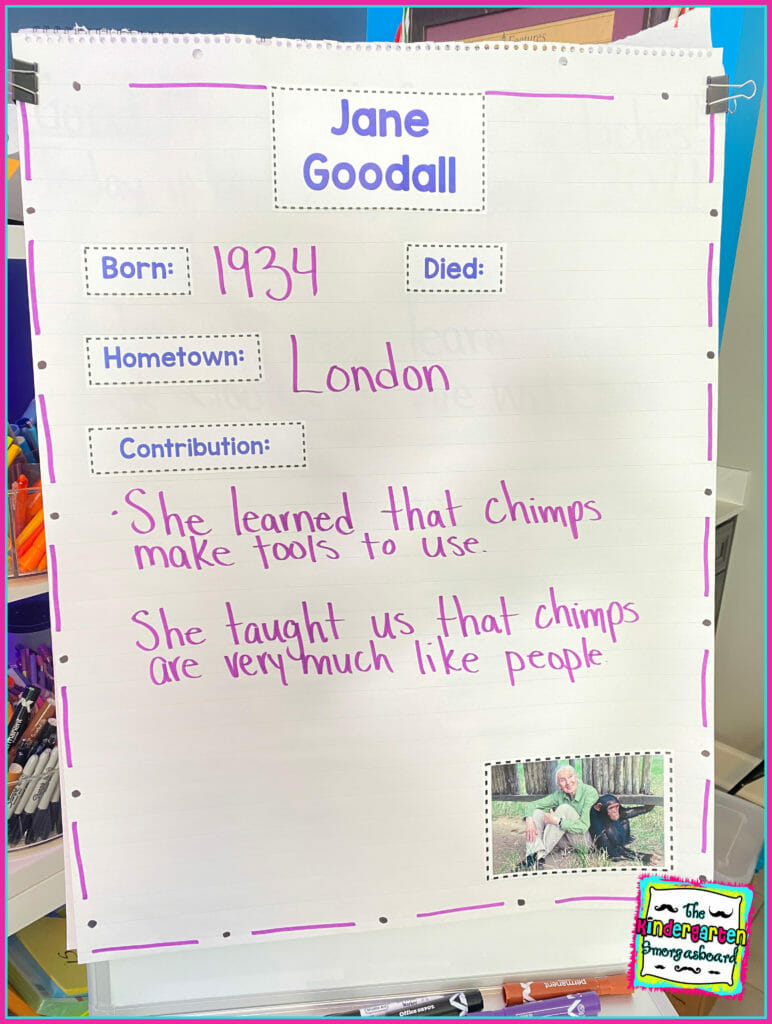 Jane
Goodall
Born: 1934 Died:
Hometown: London
Contribution:
· She learned that chimps
make tools to use.
She taught us that chimps
are very much like people.
The
Kindergarten
Smorgasboard
permanent
Office DEPOT